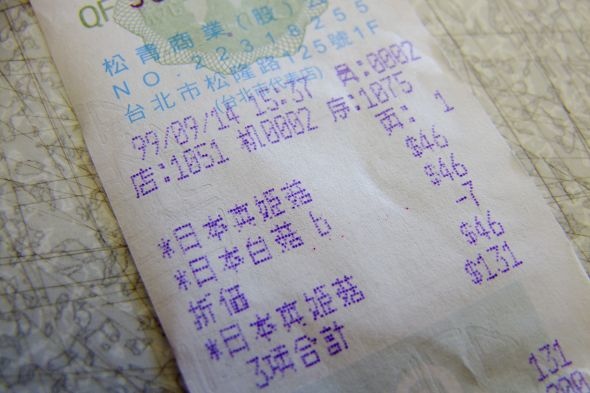 QF
松青商業(股)
NO.22318255
台北市松隆路125號1F
(台北市代表店)
99/09/14 15:37 員:0002
店:1051 机0002 序:1075
頁: 1
$46
*日本真姬菇 $46
*日本白菇 6 -7
折価 $46
*日本真姬菇 $131
3項合計
131